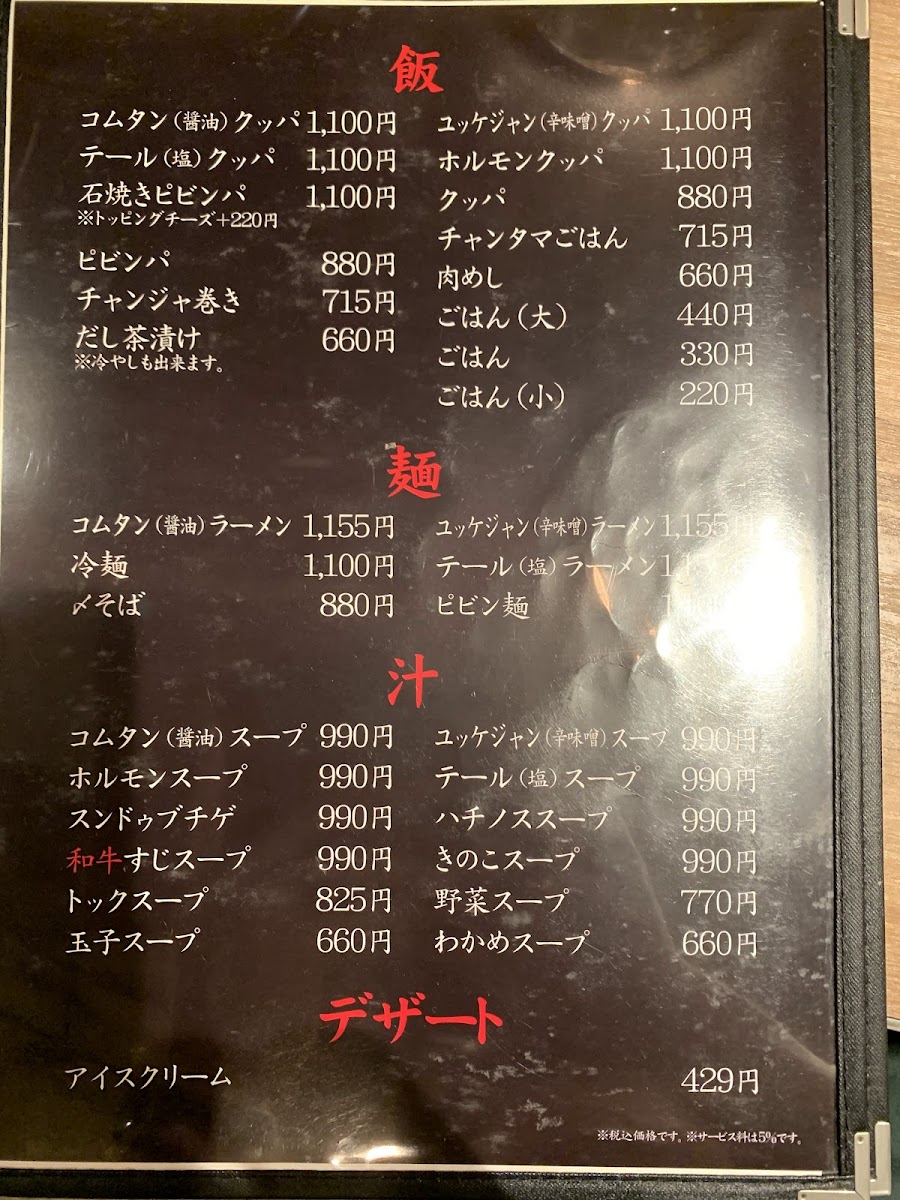 飯
コムタン(醤油)クッパ 1,100円
テール(塩)クッパ 1,100円
石焼きピビンパ 1,100円
※トッピングチーズ+220円
ピビンパ 880円
チャンジャ巻き 715円
だし茶漬け 660円
※冷やしも出来ます。
ユッケジャン(辛味噌)クッパ 1,100円
ホルモンクッパ 1,100円
クッパ 880円
チャンタマごはん 715円
肉めし 660円
ごはん(大) 440円
ごはん 330円
ごはん(小) 220円
麺
コムタン(醤油)ラーメン 1,155円
冷麺 1,100円
〆そば 880円
ユッケジャン(辛味噌)ラーメン 1,155円
テール(塩)ラーメン
ピビン麺
汁
コムタン(醤油)スープ 990円
ホルモンスープ 990円
スンドゥブチゲ 990円
和牛すじスープ 990円
トックスープ 825円
玉子スープ 660円
ユッケジャン(辛味噌)スープ 990円
テール(塩)スープ 990円
ハチノススープ 990円
きのこスープ 990円
野菜スープ 770円
わかめスープ 660円
デザート
アイスクリーム 429円
※税込価格です。※サービス料は5%です。